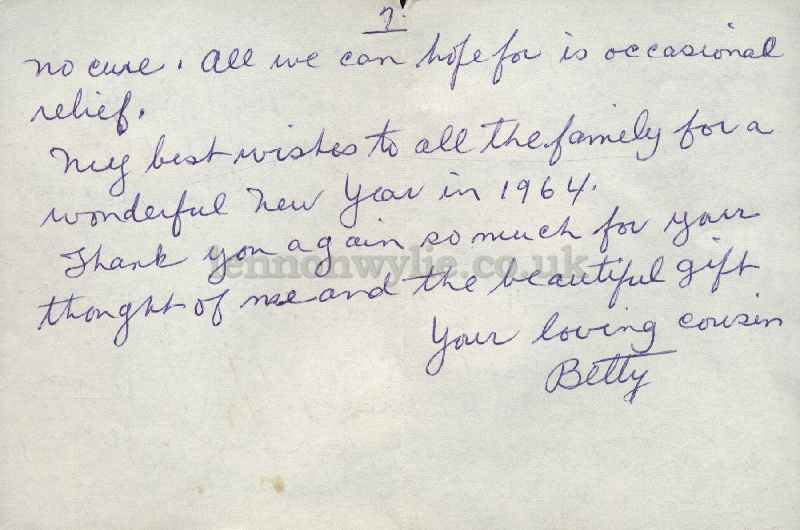 7.
no cure. All we can hope for is occasional
relief.
My best wishes to all the family for a
wonderful New Year in 1964.
Thank you again so much for your
lennonwylie.co.uk
thought of me and the beautiful gift
Your loving cousin
Betty